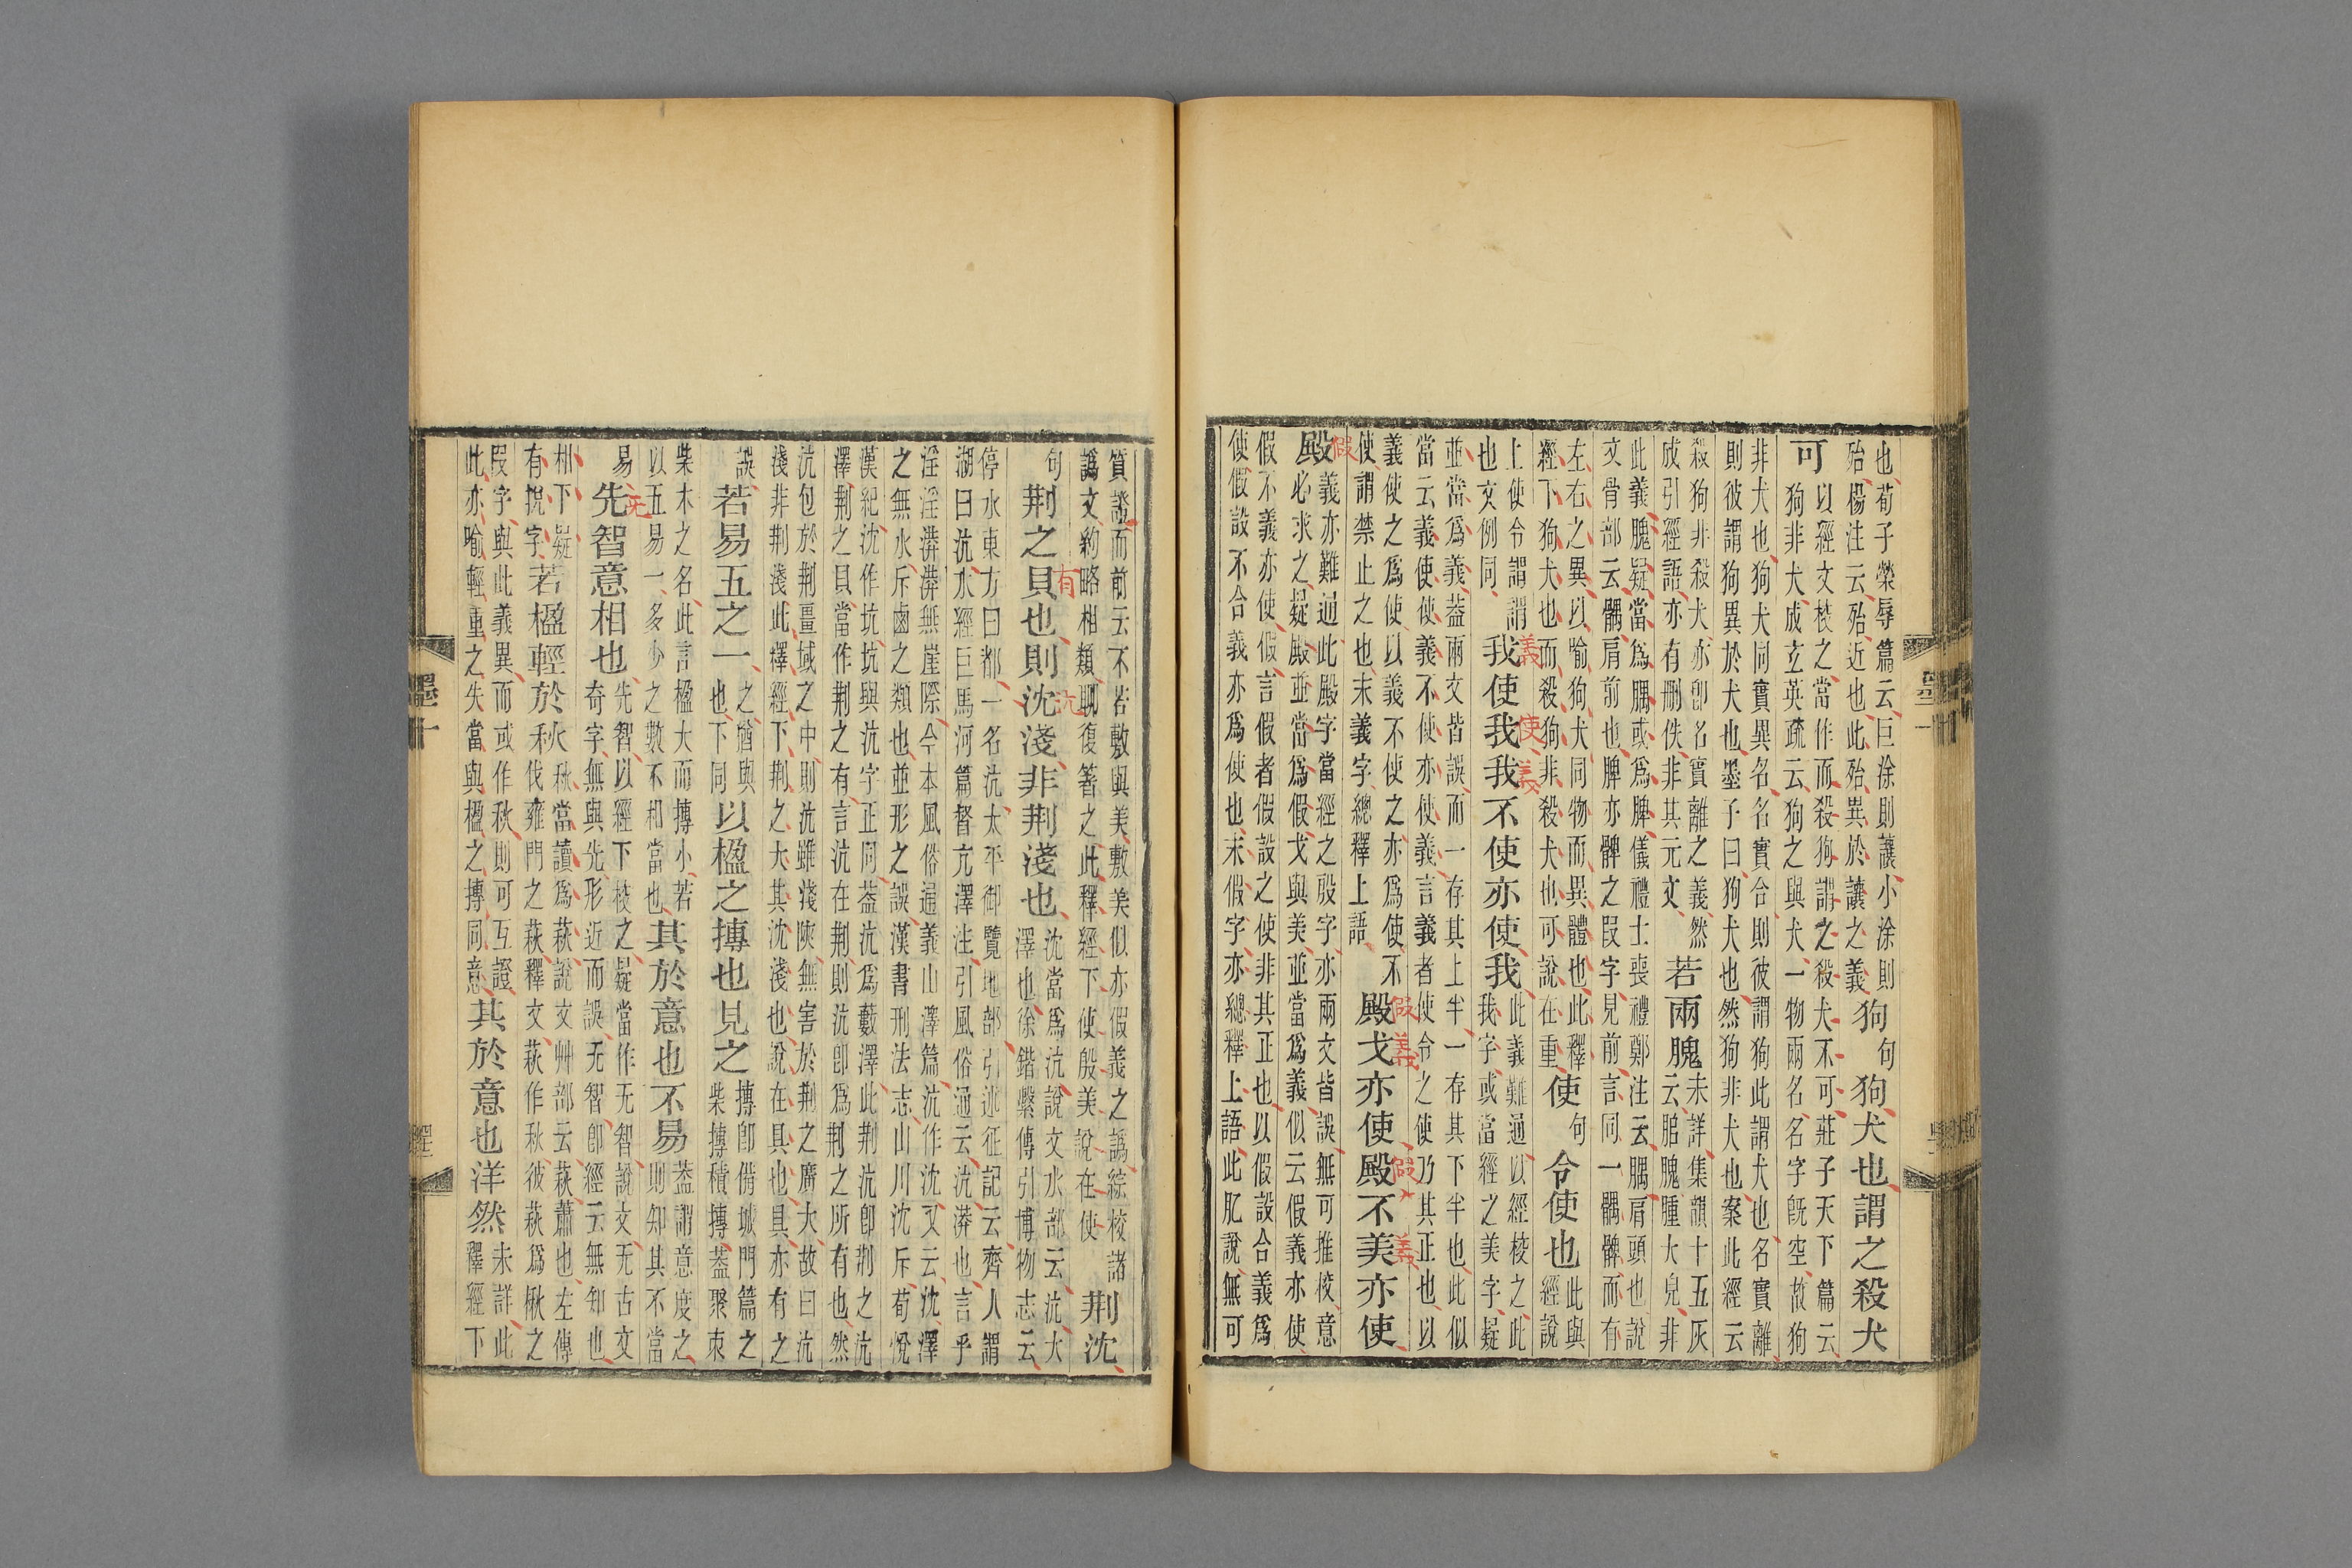 也荀子榮辱篇云巨涂則讓小涂則
殆楊注云殆近也此殆異於讓之義
狗句狗犬也謂之殺犬
可
以經文校之當作而殺狗謂之殺犬不可莊子天下篇云
狗非犬成玄英疏云狗之與犬一物兩名名字旣空故狗
非犬也狗犬同實異名名實合則彼謂狗此謂犬也名實離
則彼謂狗異於犬也墨子曰狗犬也然狗非犬也案此經云
殺狗非殺犬亦卽名實離之義然
成引經語亦有刪佚非其元文
若兩腲
未詳集韻十五灰
云䐛腲腫大皃非
此義腲疑當爲腢或爲脾儀禮士喪禮鄭注云腢肩頭也說
文骨部云髃肩前也脾亦髀之叚字見前言同一髃髀而有
左右之異以喻狗犬同物而異體也此釋
經下狗犬也而殺狗非殺犬也可說在重
使句令使也
此與
經說
上使令謂謂
也文例同
我使我我不使亦使我
義
使
義
此義難通以經校之此
我字或當經之美字疑
並當爲義蓋兩文皆誤而一存其上半一存其下半也此似
當云義使使義不使亦使義言義者使令之使乃其正也以
義使之爲使以義不使之亦爲使不
使謂禁止之也末義字總釋上語
殿戈亦使殿不美亦使
假
義
假
義
殿
假
義亦難通此殿字當經之殷字亦兩文皆誤無可推校意
必求之疑殿並當爲假戈與美並當爲義似云假義亦使
假不義亦使假言假者假設之使非其正也以假設合義爲
使假設不合義亦爲使也末假字亦總釋上語此肊說無可
質證而前云不若敷與美敷美似亦假義之譌綜校諸
譌文約略相類聊復箸之此釋經下使殷美說在使
荆沈
句
荆之貝也則沈淺非荆淺也
有
沆
沈當爲沆說文水部云沆大
澤也徐鍇繫傳引博物志云
停水東方曰都一名沆太平御覽地部引述征記云齊人謂
湖曰沆水經巨馬河篇督亢澤注引風俗通云沆漭也言乎
淫淫漭漭無崖際今本風俗通義山澤篇沆作沈又云沈澤
之無水斥鹵之類也並形之誤漢書刑法志山川沈斥荀悅
漢紀沈作坑坑與沆字正同蓋沆爲藪澤此荆沆卽荆之沆
澤荆之貝當作荆之有言沆在荆則沆卽爲荆之所有也然
沆包於荆疆域之中則沆雖淺陜無害於荆之廣大故曰沆
淺非荆淺此釋經下荆之大其沈淺也說在具也具亦有之
誤
若易五之一
之猶與
也下同
以楹之摶也見之
摶卽備城門篇之
柴摶積摶蓋聚束
柴木之名此言楹大而摶小若
以五易一多少之數不相當也
其於意也不易
蓋謂意度之
則知其不當
易
先智意相也
无
先智以經下校之疑當作无智說文无古文
奇字無與先形近而誤无智卽經云無知也
相下疑
有捝字
若楹輕於秋
秋當讀爲萩萩說文艸部云萩蕭也左傳
伐雍門之萩釋文萩作秋彼萩爲楸之
叚字與此義異而或作秋則可互證
此亦喻輕重之失當與楹之摶同意
其於意也洋然
未詳此
釋經下